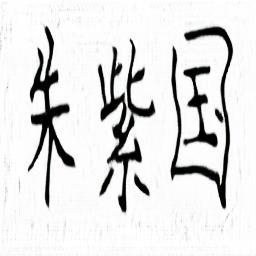 朱紫国